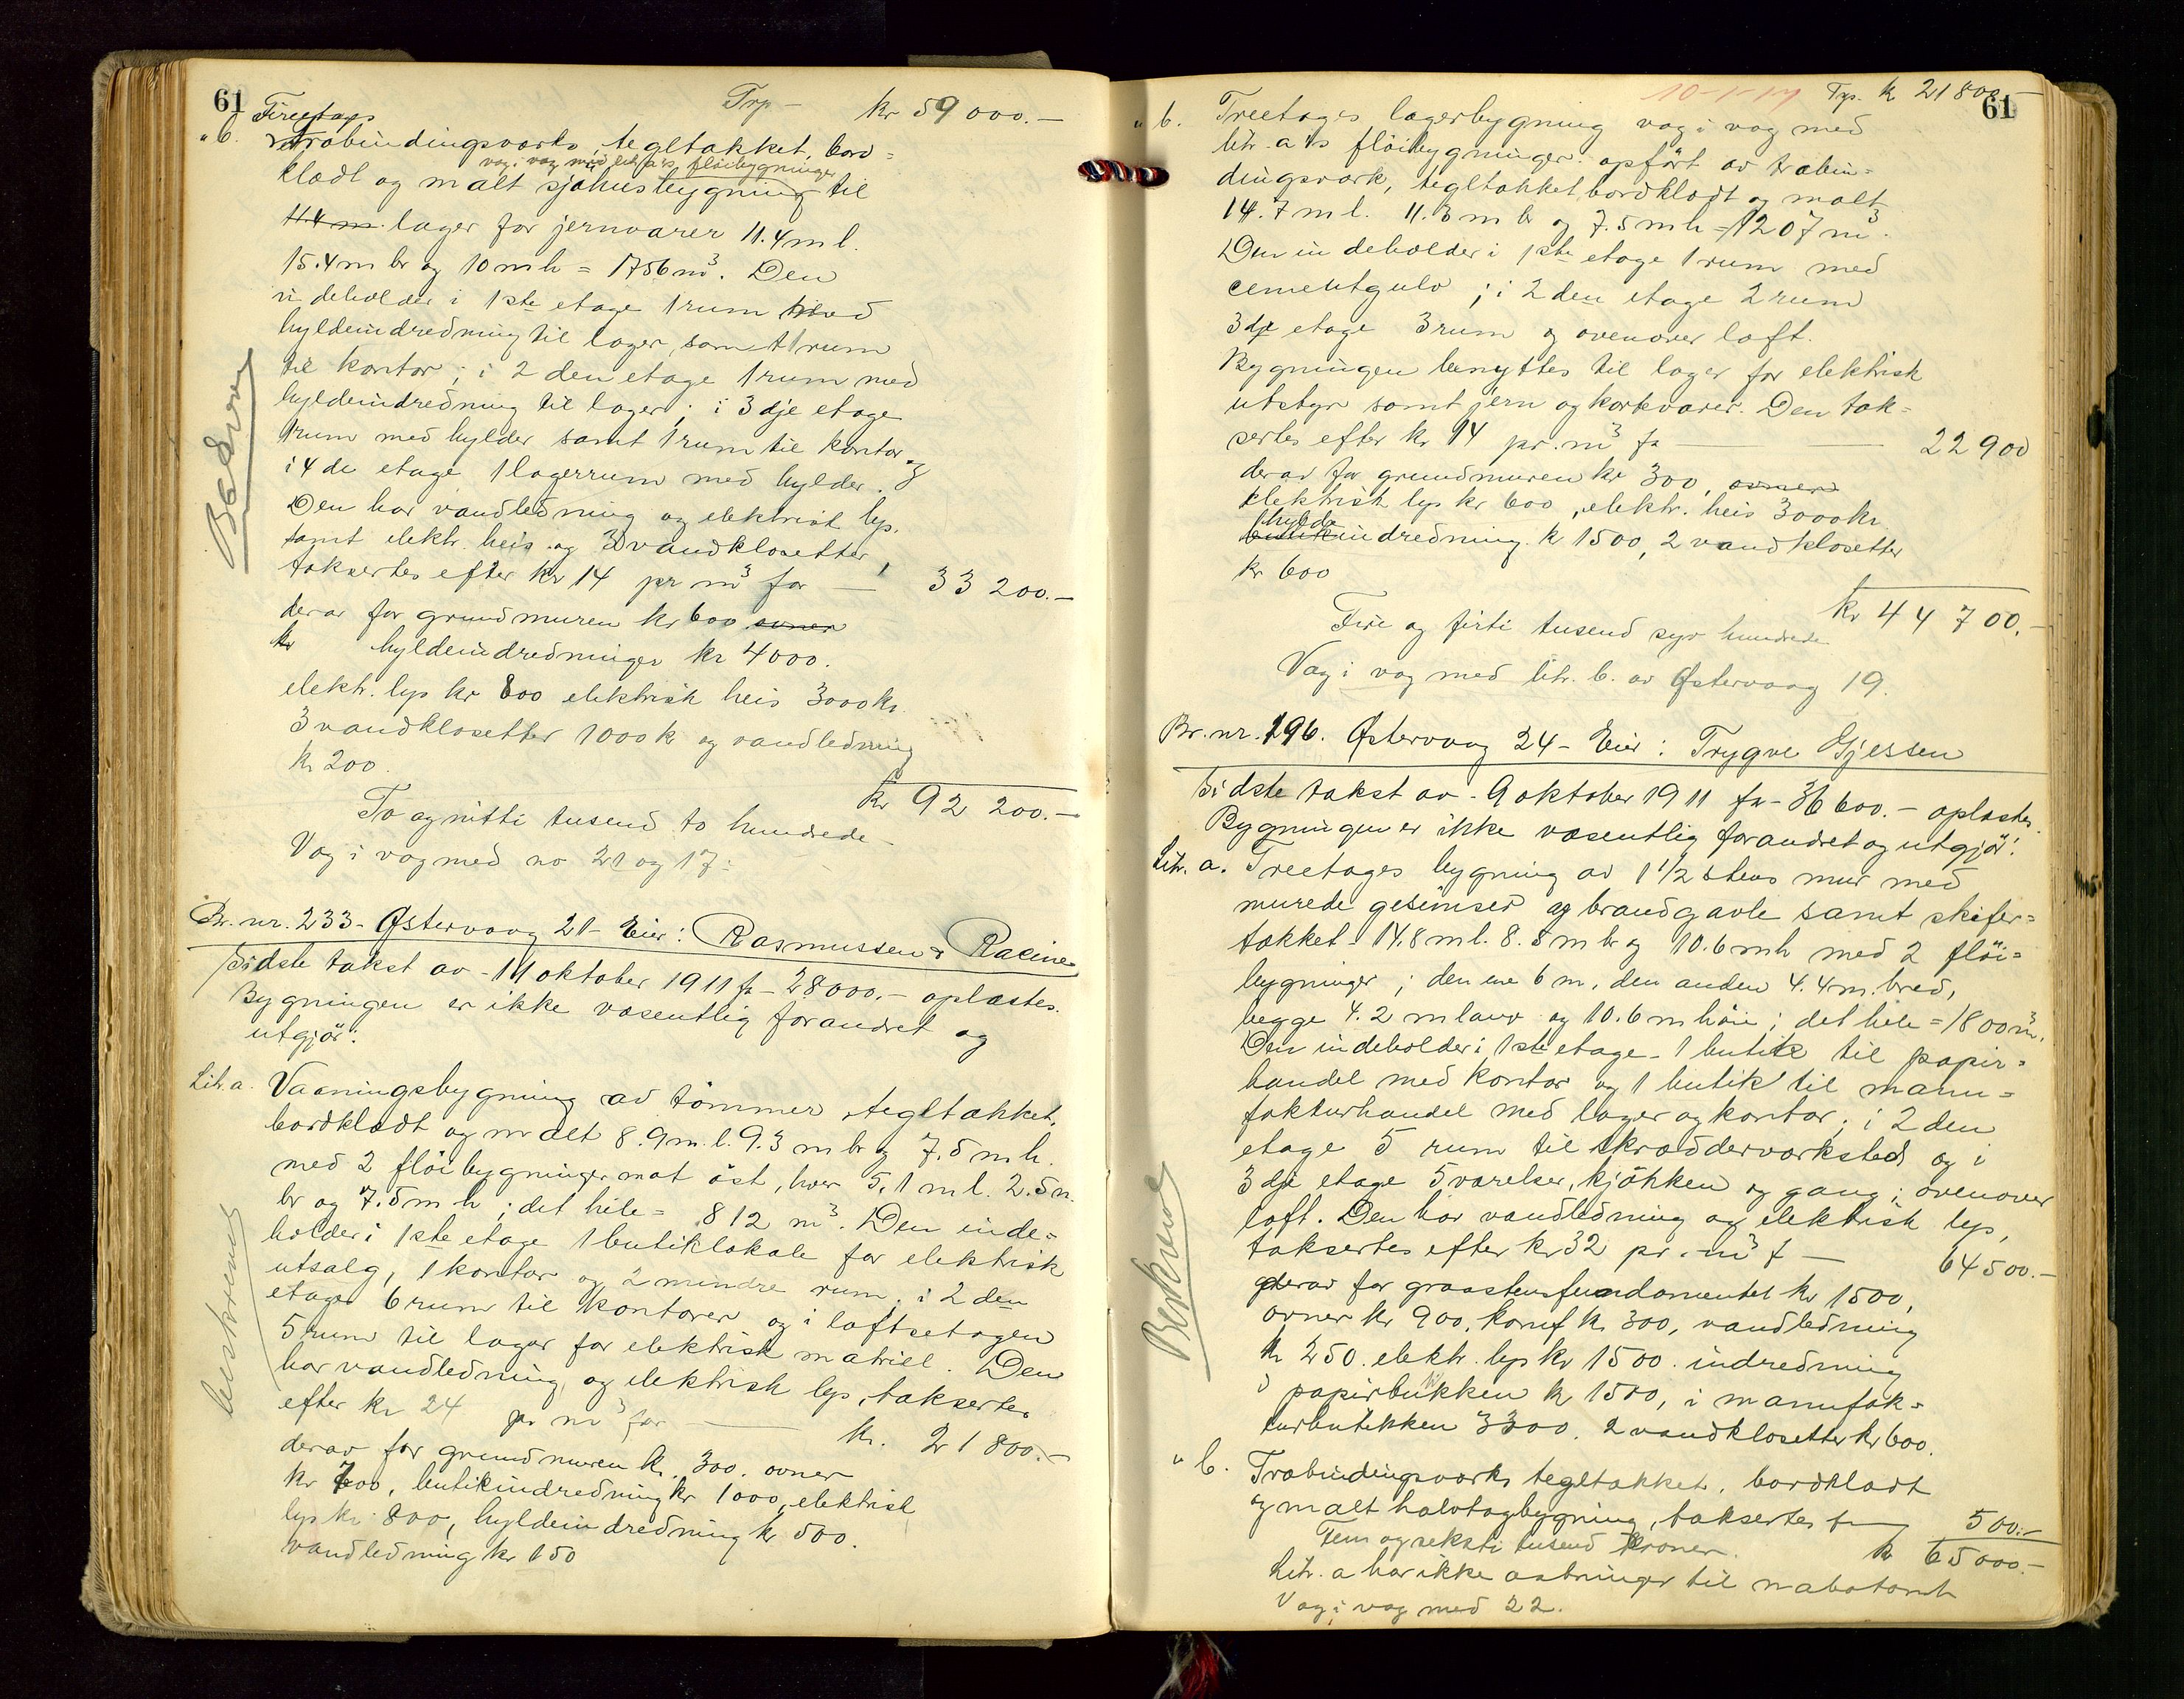 61 Trp – kr 59 000.–
Fireetages
" b. træbindingsværks, tegltækket, bord=
væg i væg med litr. a's fløibygninger
klædt og malt sjøhusbygning til
11.4 m lager for jernvarer 11.4 m l.
15.4 m br og 10 m h = 1756 m³. Den
indeholder i 1ste etage 1 rum med
hyldeindredning til lager, samt 1 rum
til kontor; i 2den etage 1 rum med
hyldeindredning til lager; i 3dje etage
1 rum med hylder samt 1 rum til kontor og
i 4de etage 1 lagerrum med hylder.
Den har vandledning og elektrisk lys.
samt elektr. heis og 3 vandklosetter,
taksertes efter kr 14 pr m³ for — 33 200.–
derav for grundmuren kr 600 ovner
kr hyldeindredninger kr 4000.
elektr. lys kr 800 elektrisk heis 3000 kr.
3 vandklosetter 1000 k og vandledning
kr 200.
kr 92 200.–
To og nitti tusend to hundrede
Væg i væg med no 21 og 17.
Br. nr. 233 – Østervaag 21 – Eier: Rasmussen & Racine
Sidste takst av – 11 oktober 1911 fr – 28000.– oplæstes.
Bygningen er ikke væsentlig forandret og
utgjør:
Litr. a. Vaaningsbygning av tømmer, tegltækket,
bordklædt og malt 8.9 m. l. 9.3 m br og 7.5 m h.
med 2 fløibygninger mot øst, hver 5.1 m l. 2.5 m.
br og 7.5 m h; det hele = 812 m³. Den inde=
holder i 1ste etage 1 butiklokale for elektrisk
utsalg, 1 kontor og 2 mindre rum; i 2den
etage 6 rum til kontorer og i loftsetagen
5 rum til lager for elektrisk matriel. Den
har vandledning og elektrisk lys, taksertes
efter kr 24 pr m³ for — kr. 21 800.–
derav for grundmuren kr. 300. ovner
kr 700, butikindredning kr 1000, elektrisk
lys kr 800, hyldeindredning kr 500.
vandledning kr 150
Beskreven
beskreven
10-1-17 Trp. k 21 800.– 61
" b. Treetages lagerbygning væg i væg med
litr. a's fløibygninger opført av træbin=
dingsværk, tegltækket, bordklædt og malt
14.7 m l. 11.3 m br og 7.5 m h = 1207 m³.
Den indeholder i 1ste etage 1 rum med
cementgulv; i 2den etage 2 rum
3dje etage 3 rum og ovenover loft.
Bygningen benyttes til lager for elektrisk
utstyr samt jern og korkvarer. Den tak=
sertes efter kr 14 pr. m³ fr — 22 900
derav for grundmuren kr 300, ovner
elektrisk lys kr 600, elektr. heis 3000 kr.
hylde
butikindredning k 1500, 2 vandklosetter
kr 600
kr 44 700.–
Fire og firti tusend syv hundrede
Væg i væg med litr. b. av Østervaag 19.
Br. nr. 196. Østervaag 24 – Eier: Trygve Gjessen
Sidste takst av – 9 oktober 1911 fr – 36 600.– oplæstes.
Bygningen er ikke væsentlig forandret og utgjør:
Litr. a. Treetages bygning av 1 1/2 stens mur med
murede gesimser og brandgavle samt skifer=
tækket – 14.8 m l. 8.5 m br og 10.6 m h med 2 fløi=
bygninger; den ene 6 m, den anden 4.4 m. bred,
begge 4.2 m lang og 10.6 m høie; det hele = 1800 m³.
Den indeholder i 1ste etage – 1 butik til papir=
handel med kontor og 1 butik til manu=
fakturhandel med lager og kontor; i 2den
etage 5 rum til skrædderværksted og i
3dje etage 5 værelser, kjøkken og gang; ovenover
loft. Den har vandledning og elektrisk lys,
taksertes efter kr 32 pr. m³ f — 64 500.–
derav for graastensfundamentet kr 1500,
ovner kr 900, komf k 300, vandledning
kr 250. elektr. lys kr 1500. indredning
i papirbutikken k 1500, i manufak=
turbutikken 3300. 2 vandklosetter kr 600.
" b. Træbindingsværks tegltækket, bordklædt
og malt halvtagbygning, taksertes fr — 500.–
Fem og seksti tusend kroner. k 65 000.–
Litr. a har ikke aabninger til nabotomt
Væg i væg med 22.
Beskreven